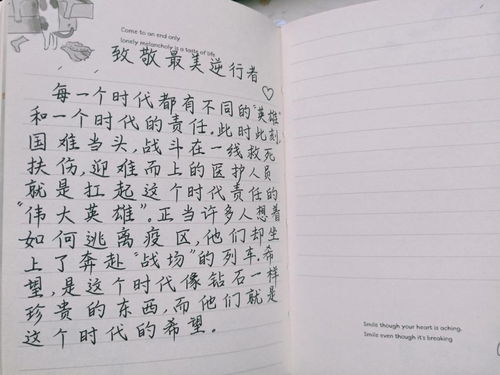 Come to an end only
lonely melancholy is a taste of life
致敬最美逆行者
每一个时代都有不同的“英雄”
和一个时代的责任.此时此刻,
国难当头,战斗在一线救死
扶伤,迎难而上的医护人员
就是扛起这个时代责任的
“伟大英雄”.正当许多人想着
如何逃离疫区,他们却坐
上了奔赴“战场”的列车.希
望,是这个时代像钻石一样
珍贵的东西,而他们就是
这个时代的希望。
Smile though your heart is aching.
Smile even though it's breaking